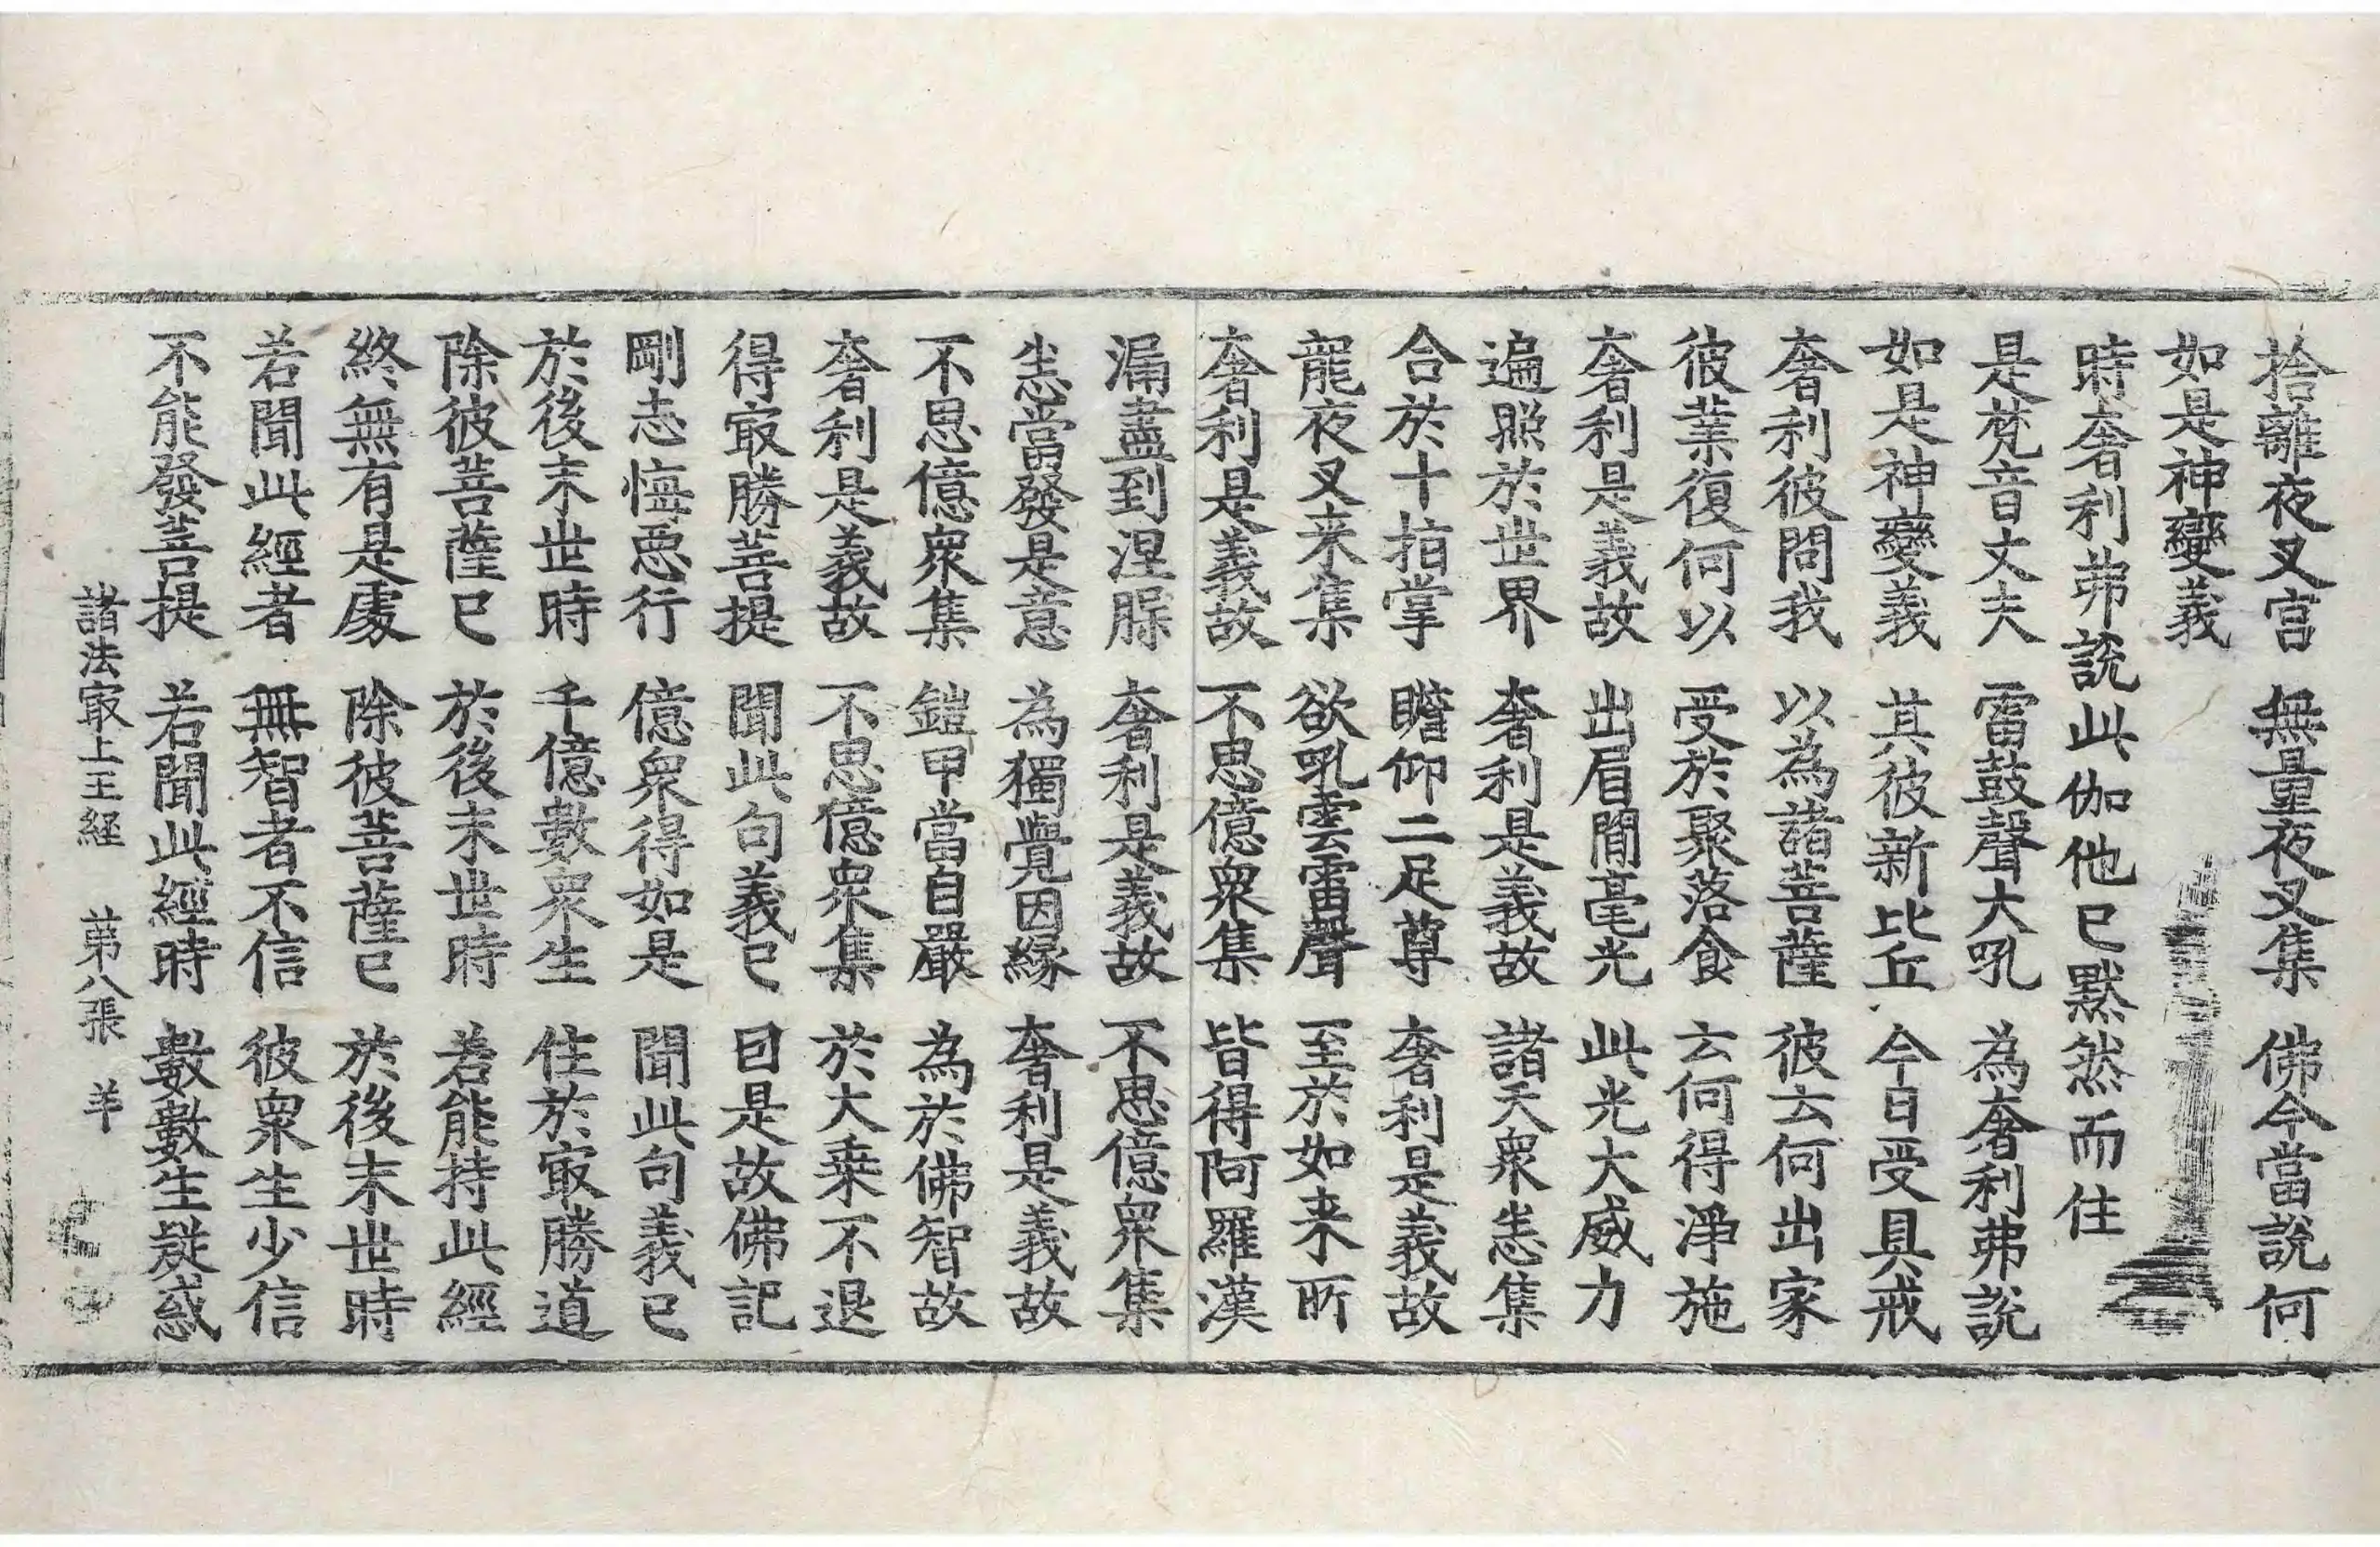 捨離夜叉宮　無量夜叉集　佛今當說何
如是神變義
時奢利弗說此伽他已默然而住
是梵音丈夫　雷鼓聲大吼　為奢利弗說
如是神變義　其彼新比丘　今日受具戒
奢利彼問我　以為諸菩薩　彼云何出家
彼業復何以　受於聚落食　云何得淨施
奢利是義故　出眉間毫光　此光大威力
遍照於世界　奢利是義故　諸天衆恙集
合於十指掌　瞻仰二足尊　奢利是義故
龍夜叉来集　欲吼雲雷聲　至於如来所
奢利是義故　不思億衆集　皆得阿羅漢
漏盡到涅脲　奢利是義故　不思億衆集
恙當發是意　為獨覺因緣　奢利是義故
不思億衆集　鎧甲當自嚴　為於佛智故
奢利是義故　不思億衆集　於大乗不退
得㝡勝菩提　聞此句義已　曰是故佛記
剛志悔惡行　億衆得如是　聞此句義已
於後末世時　千億數衆生　住於㝡勝道
除彼菩薩已　於後末世時　若能持此經
終無有是處　除彼菩薩已　於後末世時
若聞此經者　無智者不信　彼衆生少信
不能發菩提　若聞此經時　數數生疑惑
諸法㝡上王經　苐八張　羊